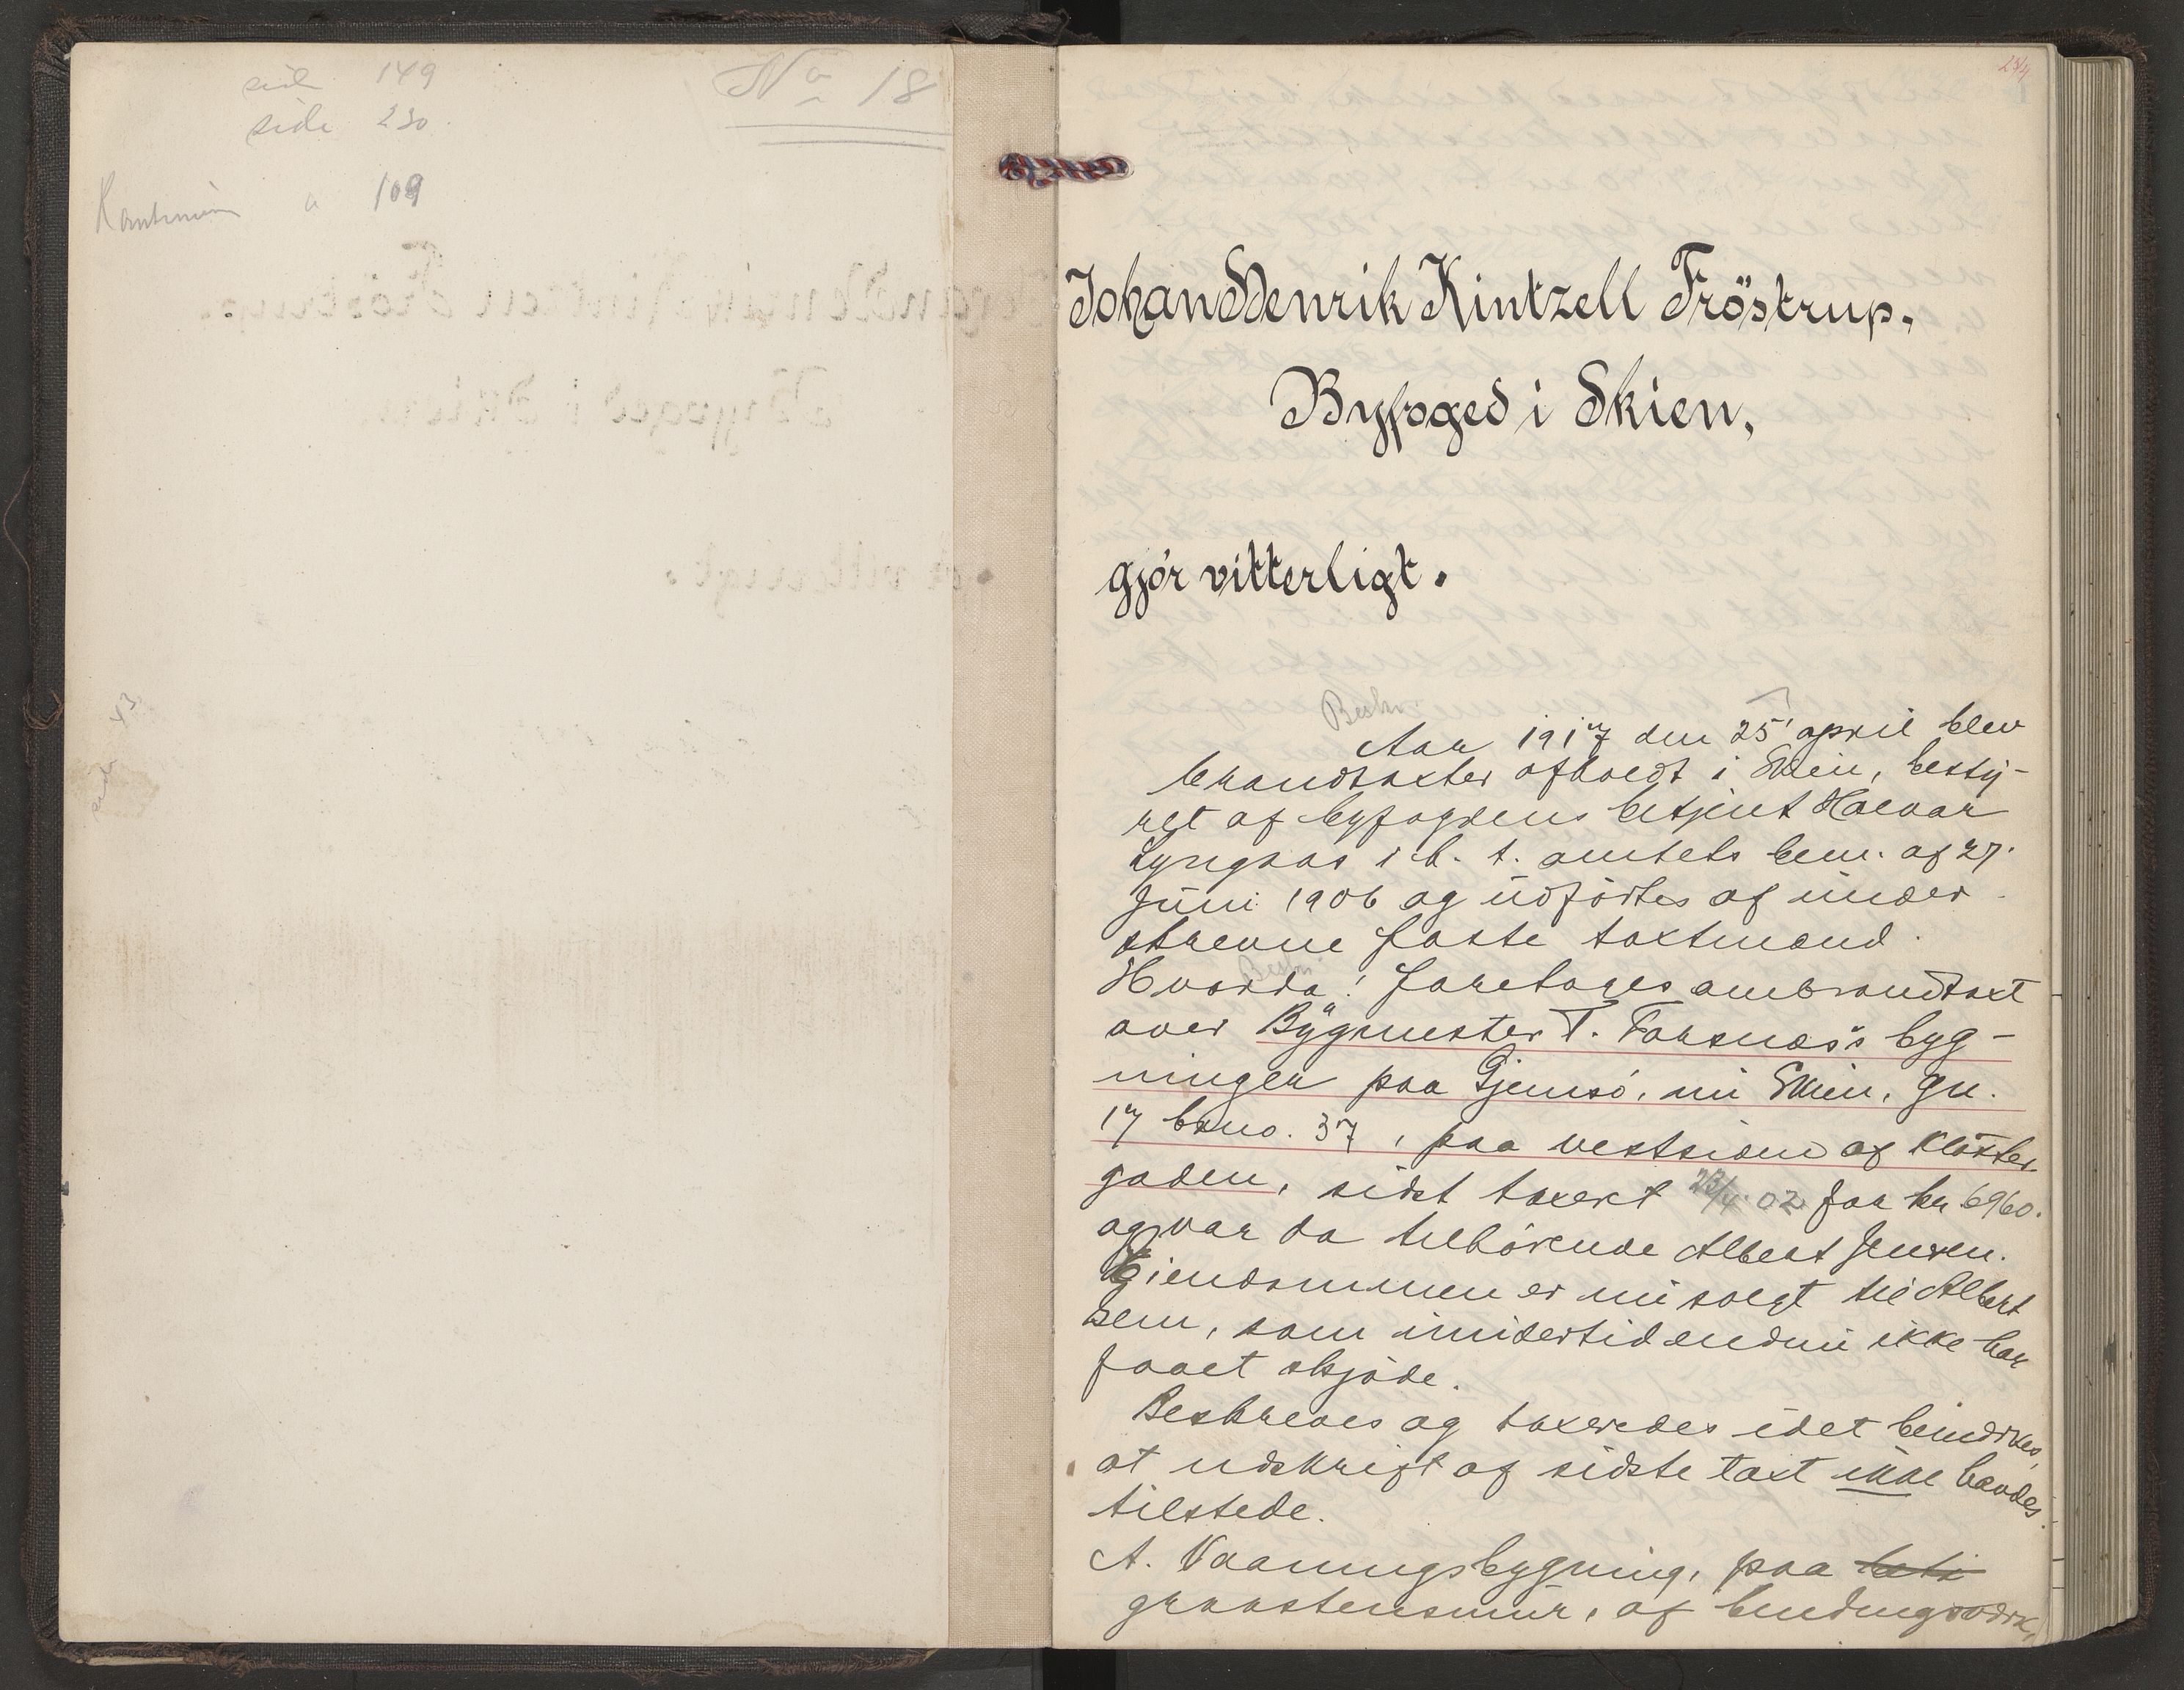 No 18
side 149
side 230
a 109
Johan Henrik Kintzell Fröstrup.
Byfoged i Skien,
gjör vitterligt.
Beskr.
Aar 1917 den 25 april blev
brandtaxter afholdt i Skien, besty-
ret af byfogdens betjent Halvar
Lyngaas i h. t. amtets bem. af 27.
juni 1906 og udförtes af under-
skrevne faste taxtmænd.
Beskr.
Hvorda: Foretoges ombrandtaxt
over Bygmester T. Forsnæs's byg-
ninger paa Gjemsö, nu Skien, gn.
17 brno. 37, paa vestsiden af Kloster-
gaden, sidst taxert 23/4 02 for kr 6960.
og var da tilhörende Albert Jensen.
Eiendommen er nu solgt til Albert
sem, som imidlertid endnu ikke har
faaet skjöde.
Beskreves og taxeredes idet bemærkes,
at udskrift af sidste taxt ikke havdes
tilstede.
A. Vaaningsbygning, paa
graastensmur, af bindingsværk,